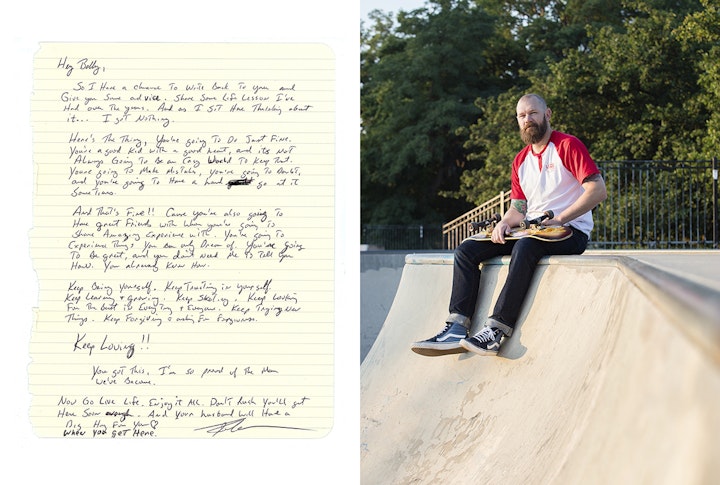 Hey Bobby,
So I Have a chance To Write Back To you and
Give you Some advice. Share Some Life Lesson I've
Had over The years. And as I Sit Here Thinking about
it... I got Nothing.
Here's The Thing, You're going To Do Just Fine.
You're a good Kid with a good heart, and it's Not
Always Going To Be an Easy World To Keep That.
You're going To Make Mistakes, you're going To doubt,
and you're going To Have a hard go at it
Sometimes.
And That's Fine!! Cause you're also going To
Have great Friends with whom you're going to
Share Amazing Experience with. You're going To
Experience Things You can only Dream of. You're going
To Be great, and you don't Need Me To Tell you
How. You already Know How.
Keep Being Yourself. Keep Trusting in yourself.
Keep Learning + growing. Keep Skating. Keep Looking
For The Best in Everything + Everyone. Keep Trying New
Things. Keep Forgiving + asking For Forgiveness.
Keep Loving!!
You got This, I'm so proud of the Man
We've Become.
Now Go Live Life. Enjoy it All. Don't Rush you'll get
Here Soon enough. And your husband will Have a
Big Hug For You
when you get Here.